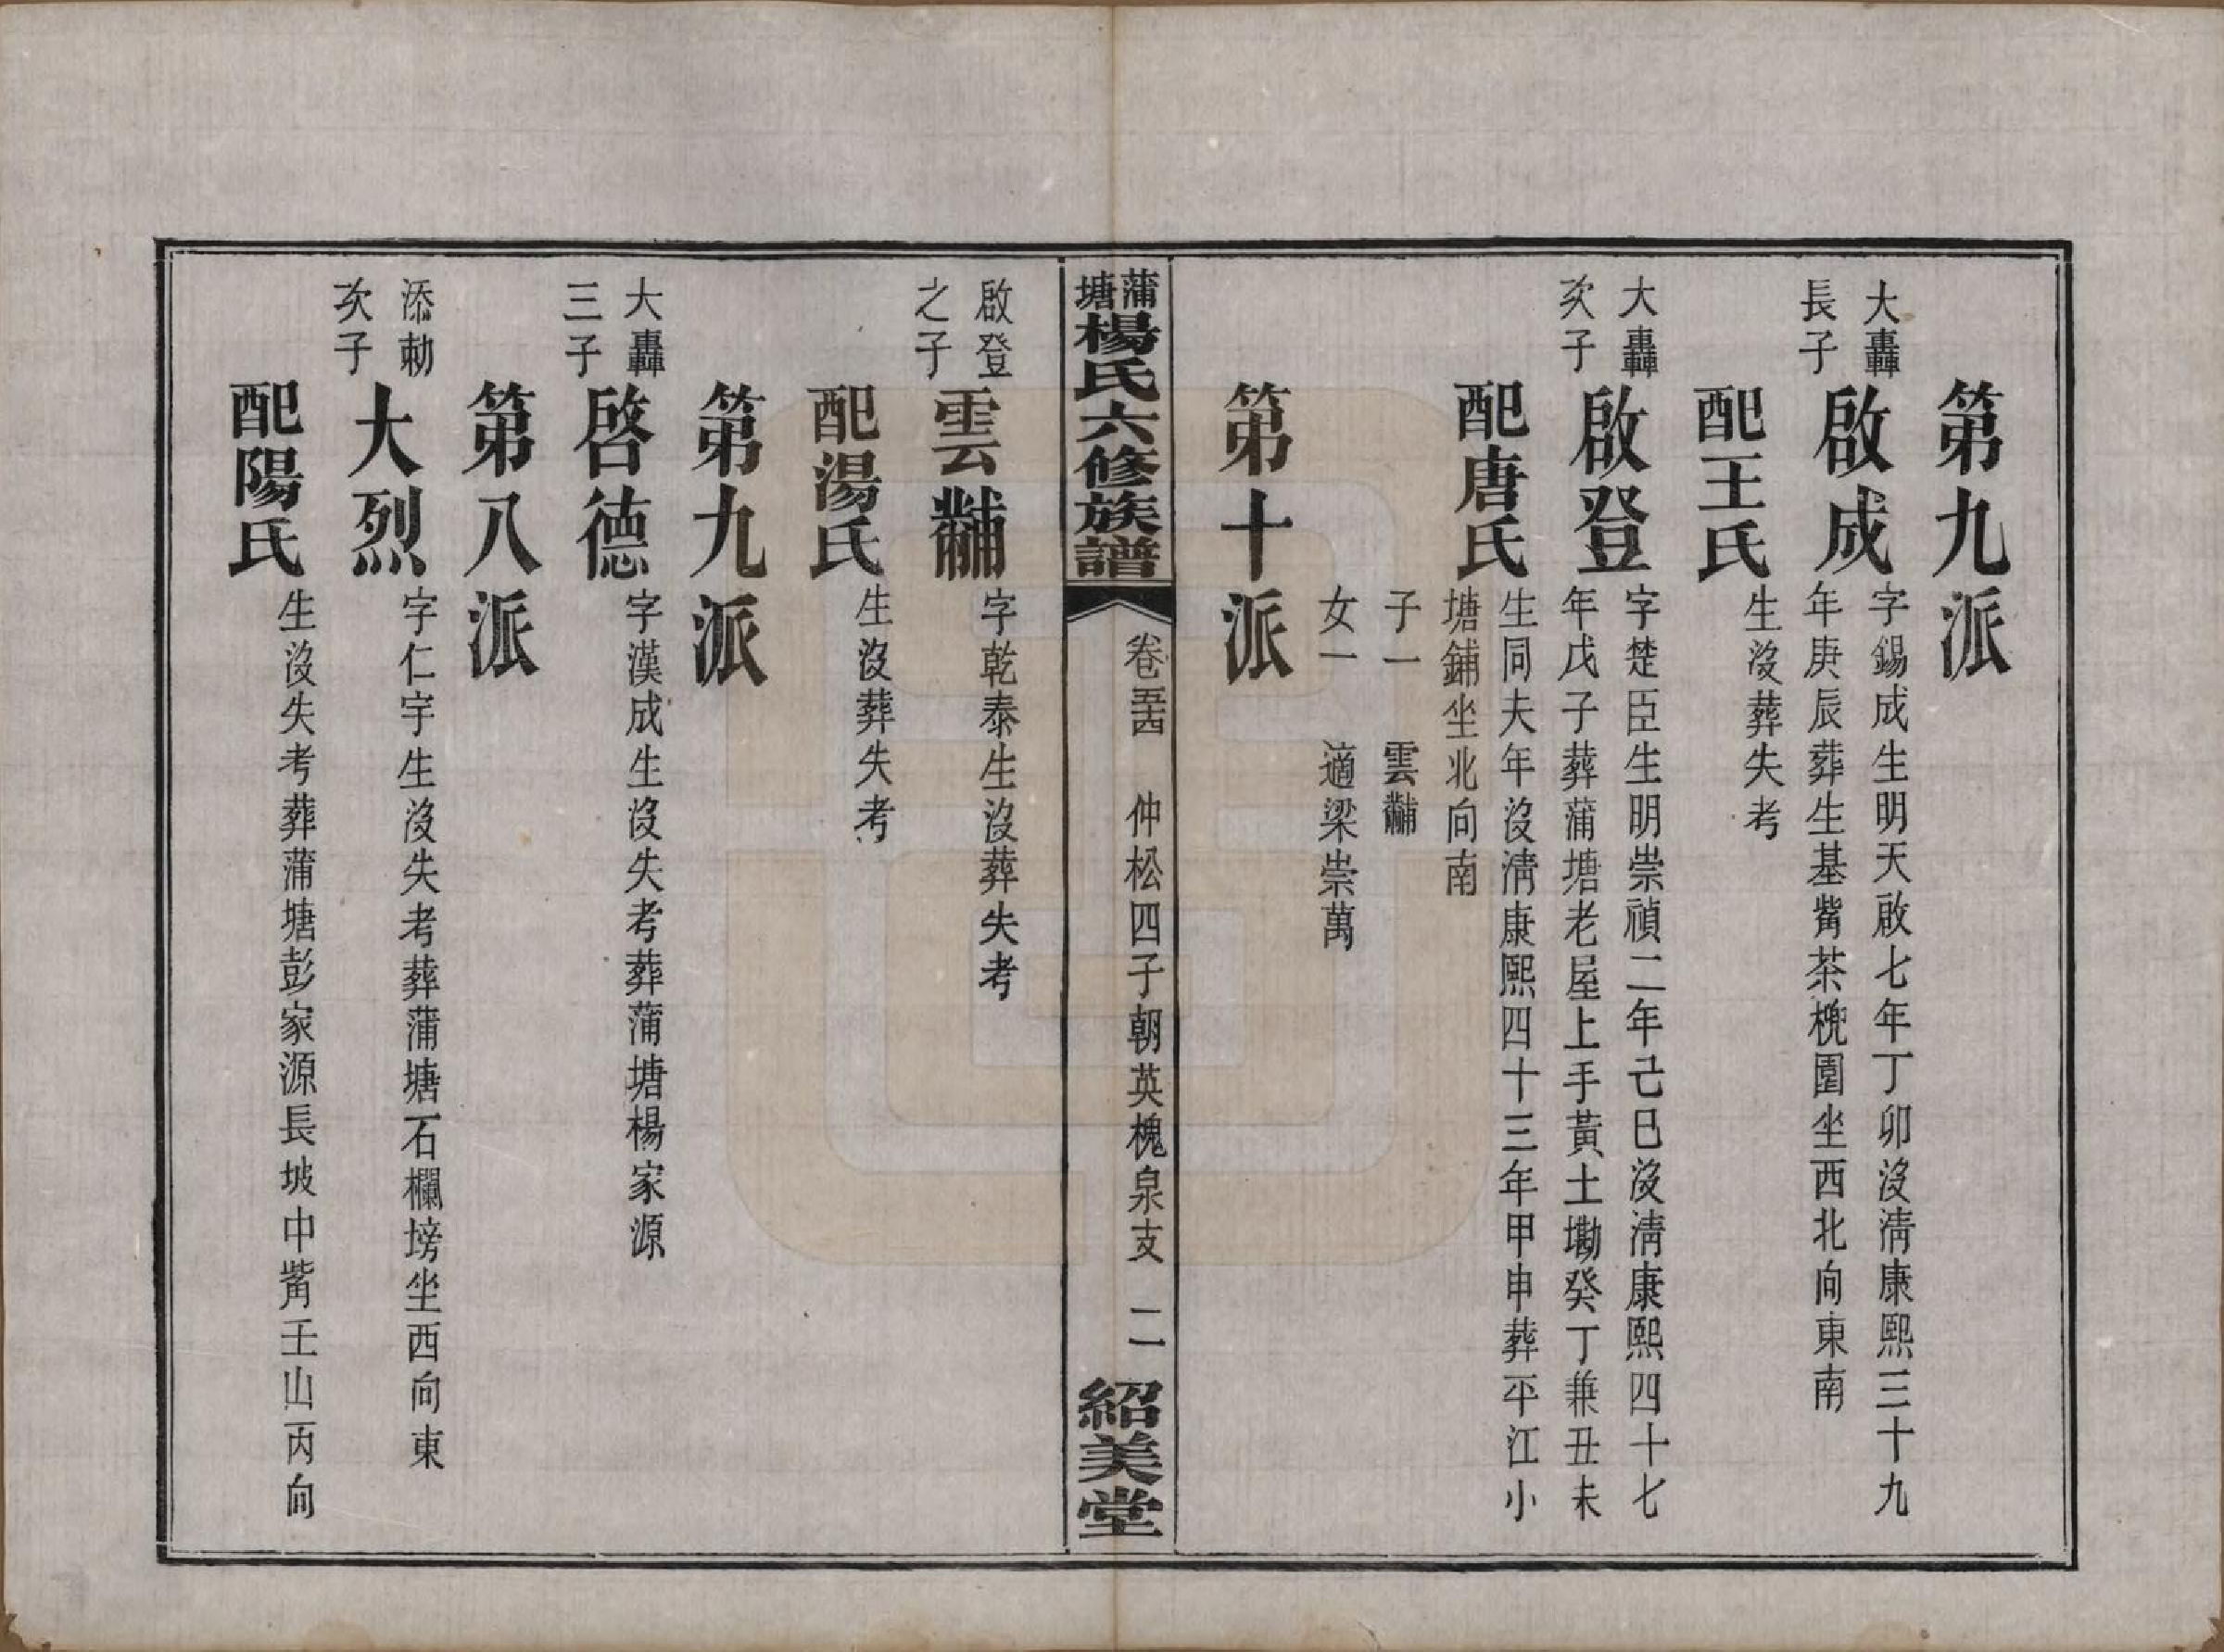 第九派
大轟長子
啟成
字錫成生明天啟七年丁卯沒清康熙三十九
年庚辰葬生基觜茶槐園坐西北向東南
配王氏
生沒葬失考
大轟次子
啟登
字楚臣生明崇禎二年己巳沒清康熙四十七
年戊子葬蒲塘老屋上手黃土墈癸丁兼丑未
配唐氏
生同夫年沒清康熙四十三年甲申葬平江小
塘鋪坐北向南
子一 雲黼
女一 適梁崇萬
第十派
蒲塘楊氏六修族譜
卷五十四 仲松四子朝英槐泉支 二
紹美堂
啟登之子
雲黼
字乾泰生沒葬失考
配湯氏
生沒葬失考
第九派
大轟三子
啓德
字漢成生沒失考葬蒲塘楊家源
第八派
添勑次子
大烈
字仁宇生沒失考葬蒲塘石欄塝坐西向東
配陽氏
生沒失考葬蒲塘彭家源長坡中觜壬山丙向